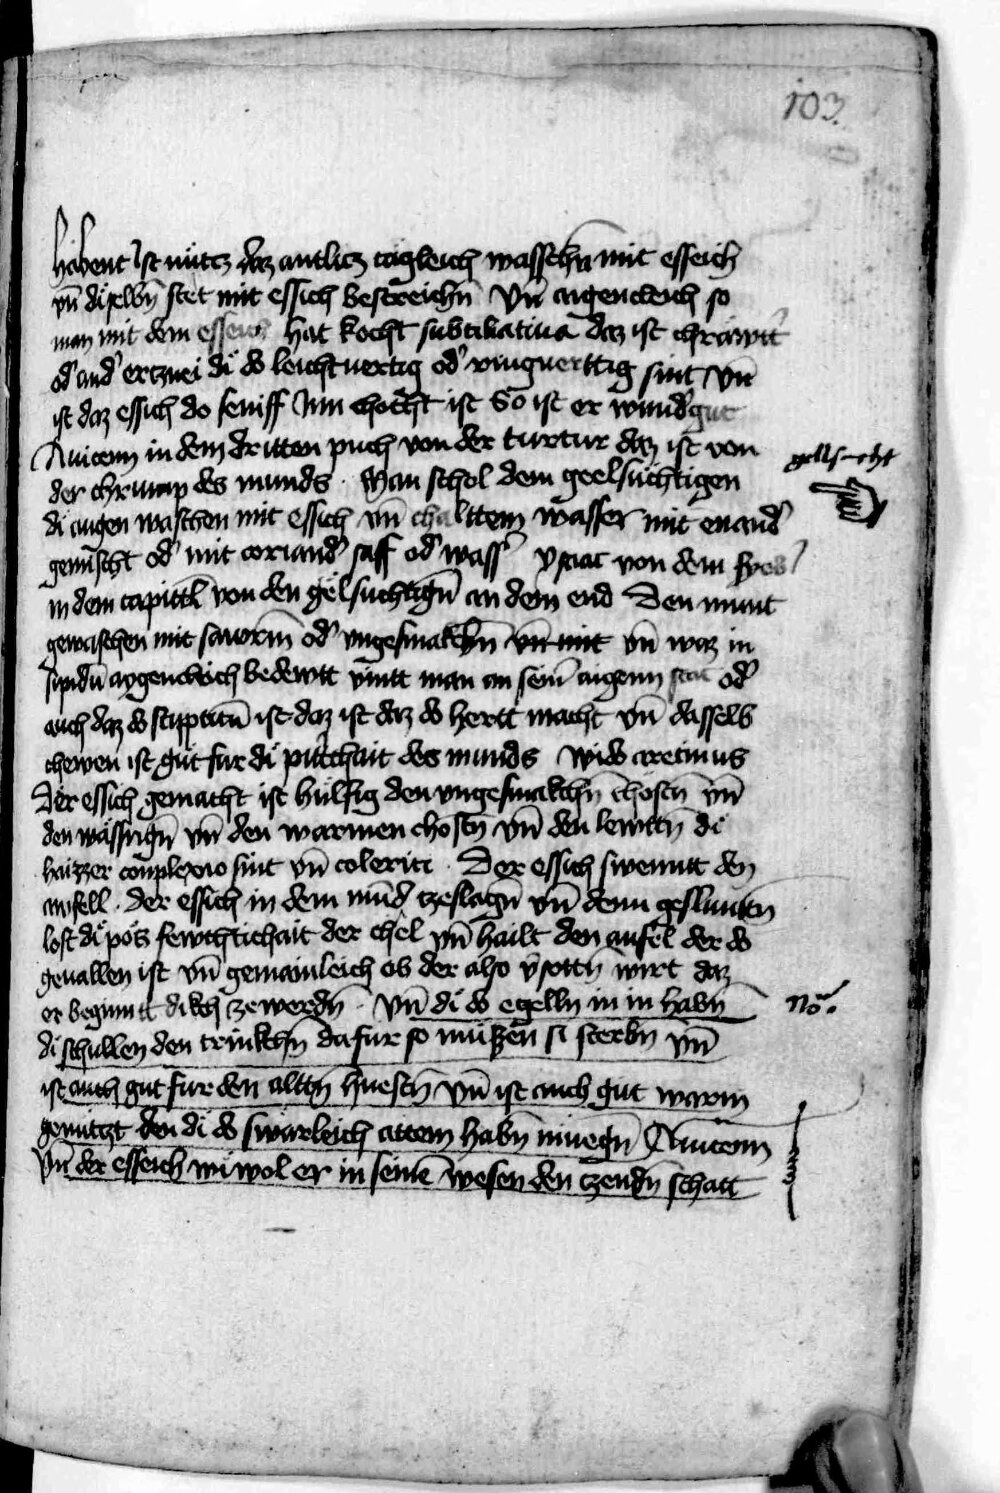 103.
habent Ist nütcz daz antlicz tägleich wasschn̄ mit esseich
vn̄ diselbn̄ stet mit essich bestreichn̄ Vn̄ augencleich so
man mit dem esseich hat kocht subtiliatiua daz ist chrawt
od' and' ertznei di do leichtuertig od' ringuerttig sint Vn̄
ist daz essich do seniff Inn chocht ist So ist er wund' gut
Auicenn in dem dritten puch von der turtur daz ist von
der chrump des munds . Man schol dem geelsuchtigen
gelbsucht
di augen waschen mit essich vn̄ chalttem wasser mit enand'
gemischt od' mit coriand' saff od' wass' ysaac von dem
in dem capittl von den gelsuchtign̄ an dem end Den munt
gewaschen mit sawrm̄ od' vngesmakchn̄ vn̄ mit vn̄ waz in
sipidū aygencleich bedewtt vintt man an seim̄ aigenn stat od'
auch daz do stipticū ist daz ist daz do hertt macht vn̄ dasselb
chewen ist gut fur di des munds wid'
Der essich gemacht ist hulfig den vngesmakchn̄ chostn̄ vn̄
den wässrign̄ vn̄ den warmen chostn̄ vn̄ den lewttn̄ di
haizzer complexio sint vn̄ colerici . Der essich swemtt den
awfell . der essich in dem mūd tzeslagn̄ vn̄ denn geslunkn̄
lost di pos fewchtichait der chel vn̄ hailt den aufel der do
geuallen ist vn̄ gemainleich ob der also v'sottn̄ wirt daz
er beginntt dikch ze werdn̄ . Vn̄ di do egelln in in habn̄
No͞.
di schullen den trinkchn̄ dafur so müssen si sterbn vn̄
ist auch gut fur den alttn̄ huestn̄ Vn̄ ist auch gut warm
genützt den di do swarleich attem habn̄ Auicenn
Vn̄ der esseich wi wol er in seinē wesen den tzendn̄ schatt